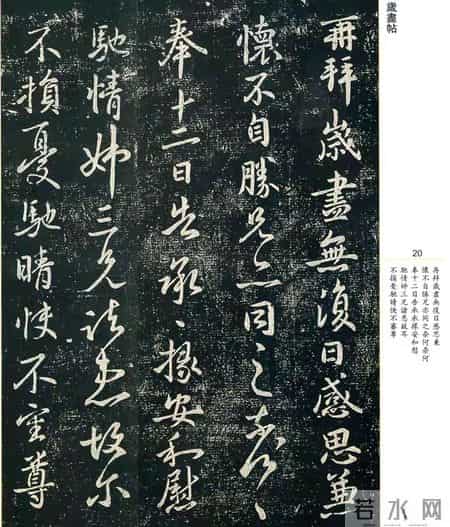 歲盡帖
再拜歲盡無復日感思兼
懷不自勝兄亦同之奈何〻
奉十二日告承掾安和慰
馳情姊三兄諸患故爾
不損憂馳晴快不審尊
20
再拜歲盡無復日感思兼
懷不自勝兄亦同之奈何奈何
奉十二日告承掾安和慰
馳情姊三兄諸患故爾
不損憂馳晴快不審尊
若水网